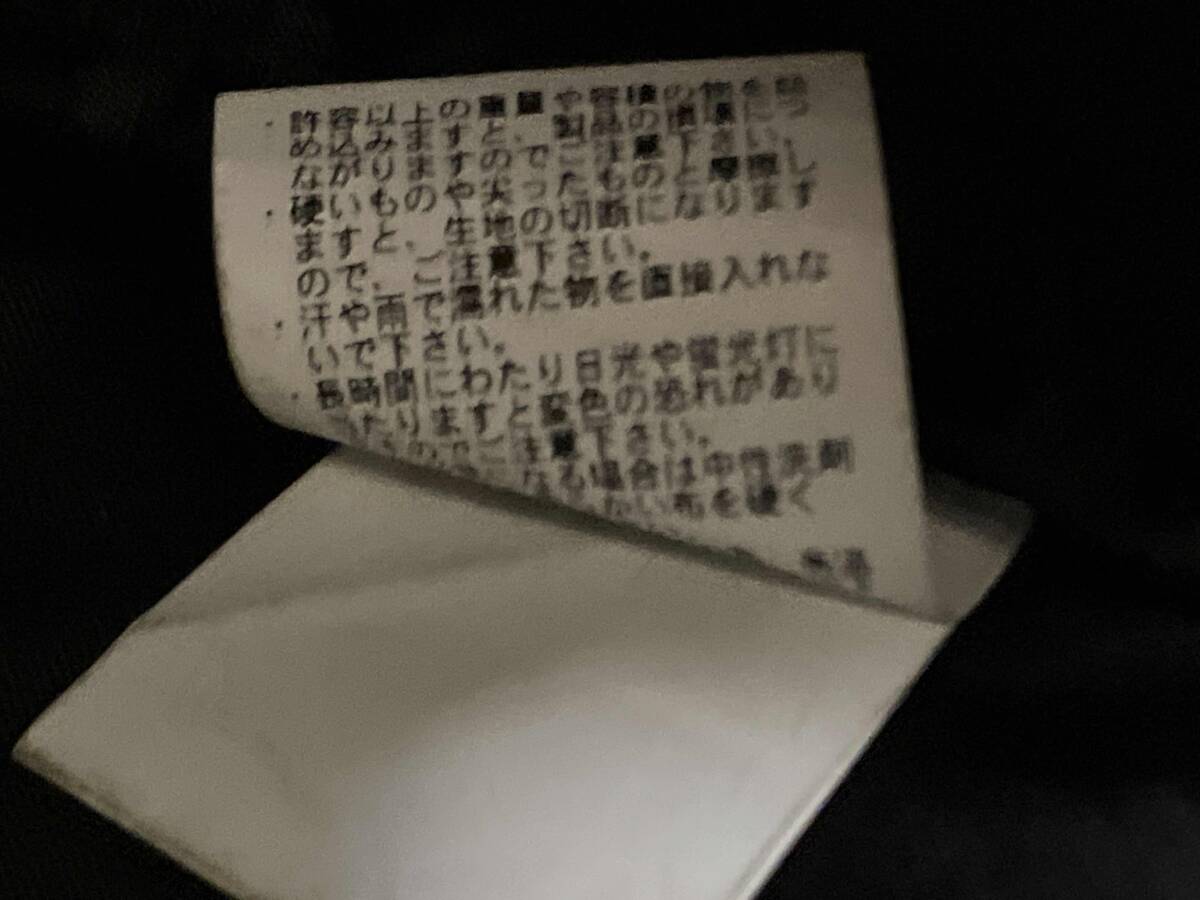 ・許容以上の重量や容積の物を詰
め込みますと、製品の損壊につ
ながりますのでご注意下さい。
・硬いものや尖ったものと摩擦し
ますと、生地の切断になります
ので、ご注意下さい。
・汗や雨で濡れた物を直接入れな
いで下さい。
・長時間にわたり日光や蛍光灯に
たりますと変色の恐れがあり
のでご注意下さい。
なる場合は中性洗剤
かい布を硬く